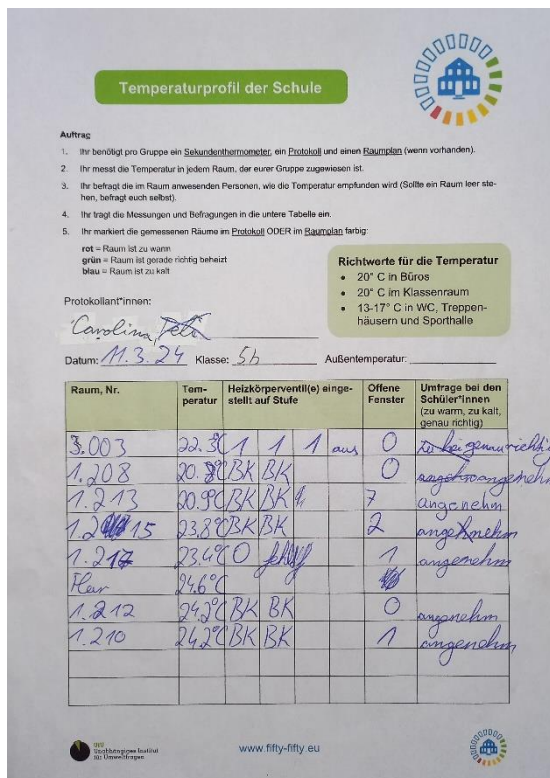 Temperaturprofil der Schule
Auftrag
1. Ihr benötigt pro Gruppe ein Sekundenthermometer, ein Protokoll und einen Raumplan (wenn vorhanden).
2. Ihr messt die Temperatur in jedem Raum, der eurer Gruppe zugewiesen ist.
3. Ihr befragt die im Raum anwesenden Personen, wie die Temperatur empfunden wird (Sollte ein Raum leer ste-
hen, befragt euch selbst).
4. Ihr tragt die Messungen und Befragungen in die untere Tabelle ein.
5. Ihr markiert die gemessenen Räume im Protokoll ODER im Raumplan farbig:
rot = Raum ist zu warm
grün = Raum ist gerade richtig beheizt
blau = Raum ist zu kalt
Richtwerte für die Temperatur
• 20° C in Büros
• 20° C im Klassenraum
• 13-17° C in WC, Treppen-
häusern und Sporthalle
Protokollant*innen:
Carolina,
Datum: 11.3.24 Klasse: 5b Außentemperatur:
Raum, Nr. Tem-
peratur Heizkörperventil(e) einge-
stellt auf Stufe Offene
Fenster Umfrage bei den
Schüler*innen
(zu warm, zu kalt,
genau richtig)
3.003 22.3°C 1 1 1 aus 0 genau richtig
1.208 20. °C BK BK 0 angenehm
1.213 20.9°C BK BK 7 angenehm
1.2 15 23,8°C BK BK 2 angenehm
1.217 23.4°C 0 1 angenehm
Flur 24.6°C
1.212 24,2°C BK BK 0 angenehm
1.210 24,2°C BK BK 1 angenehm
UfU
Unabhängiges Institut
für Umweltfragen
www.fifty-fifty.eu